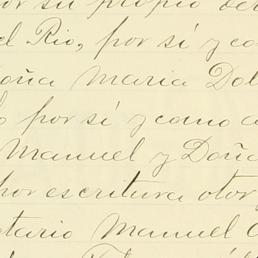 por su propio der
el Rio, por sí y co
Doña Maria Dol
por sí y como a
Manuel y Doña
por escritura otor
otario Manuel